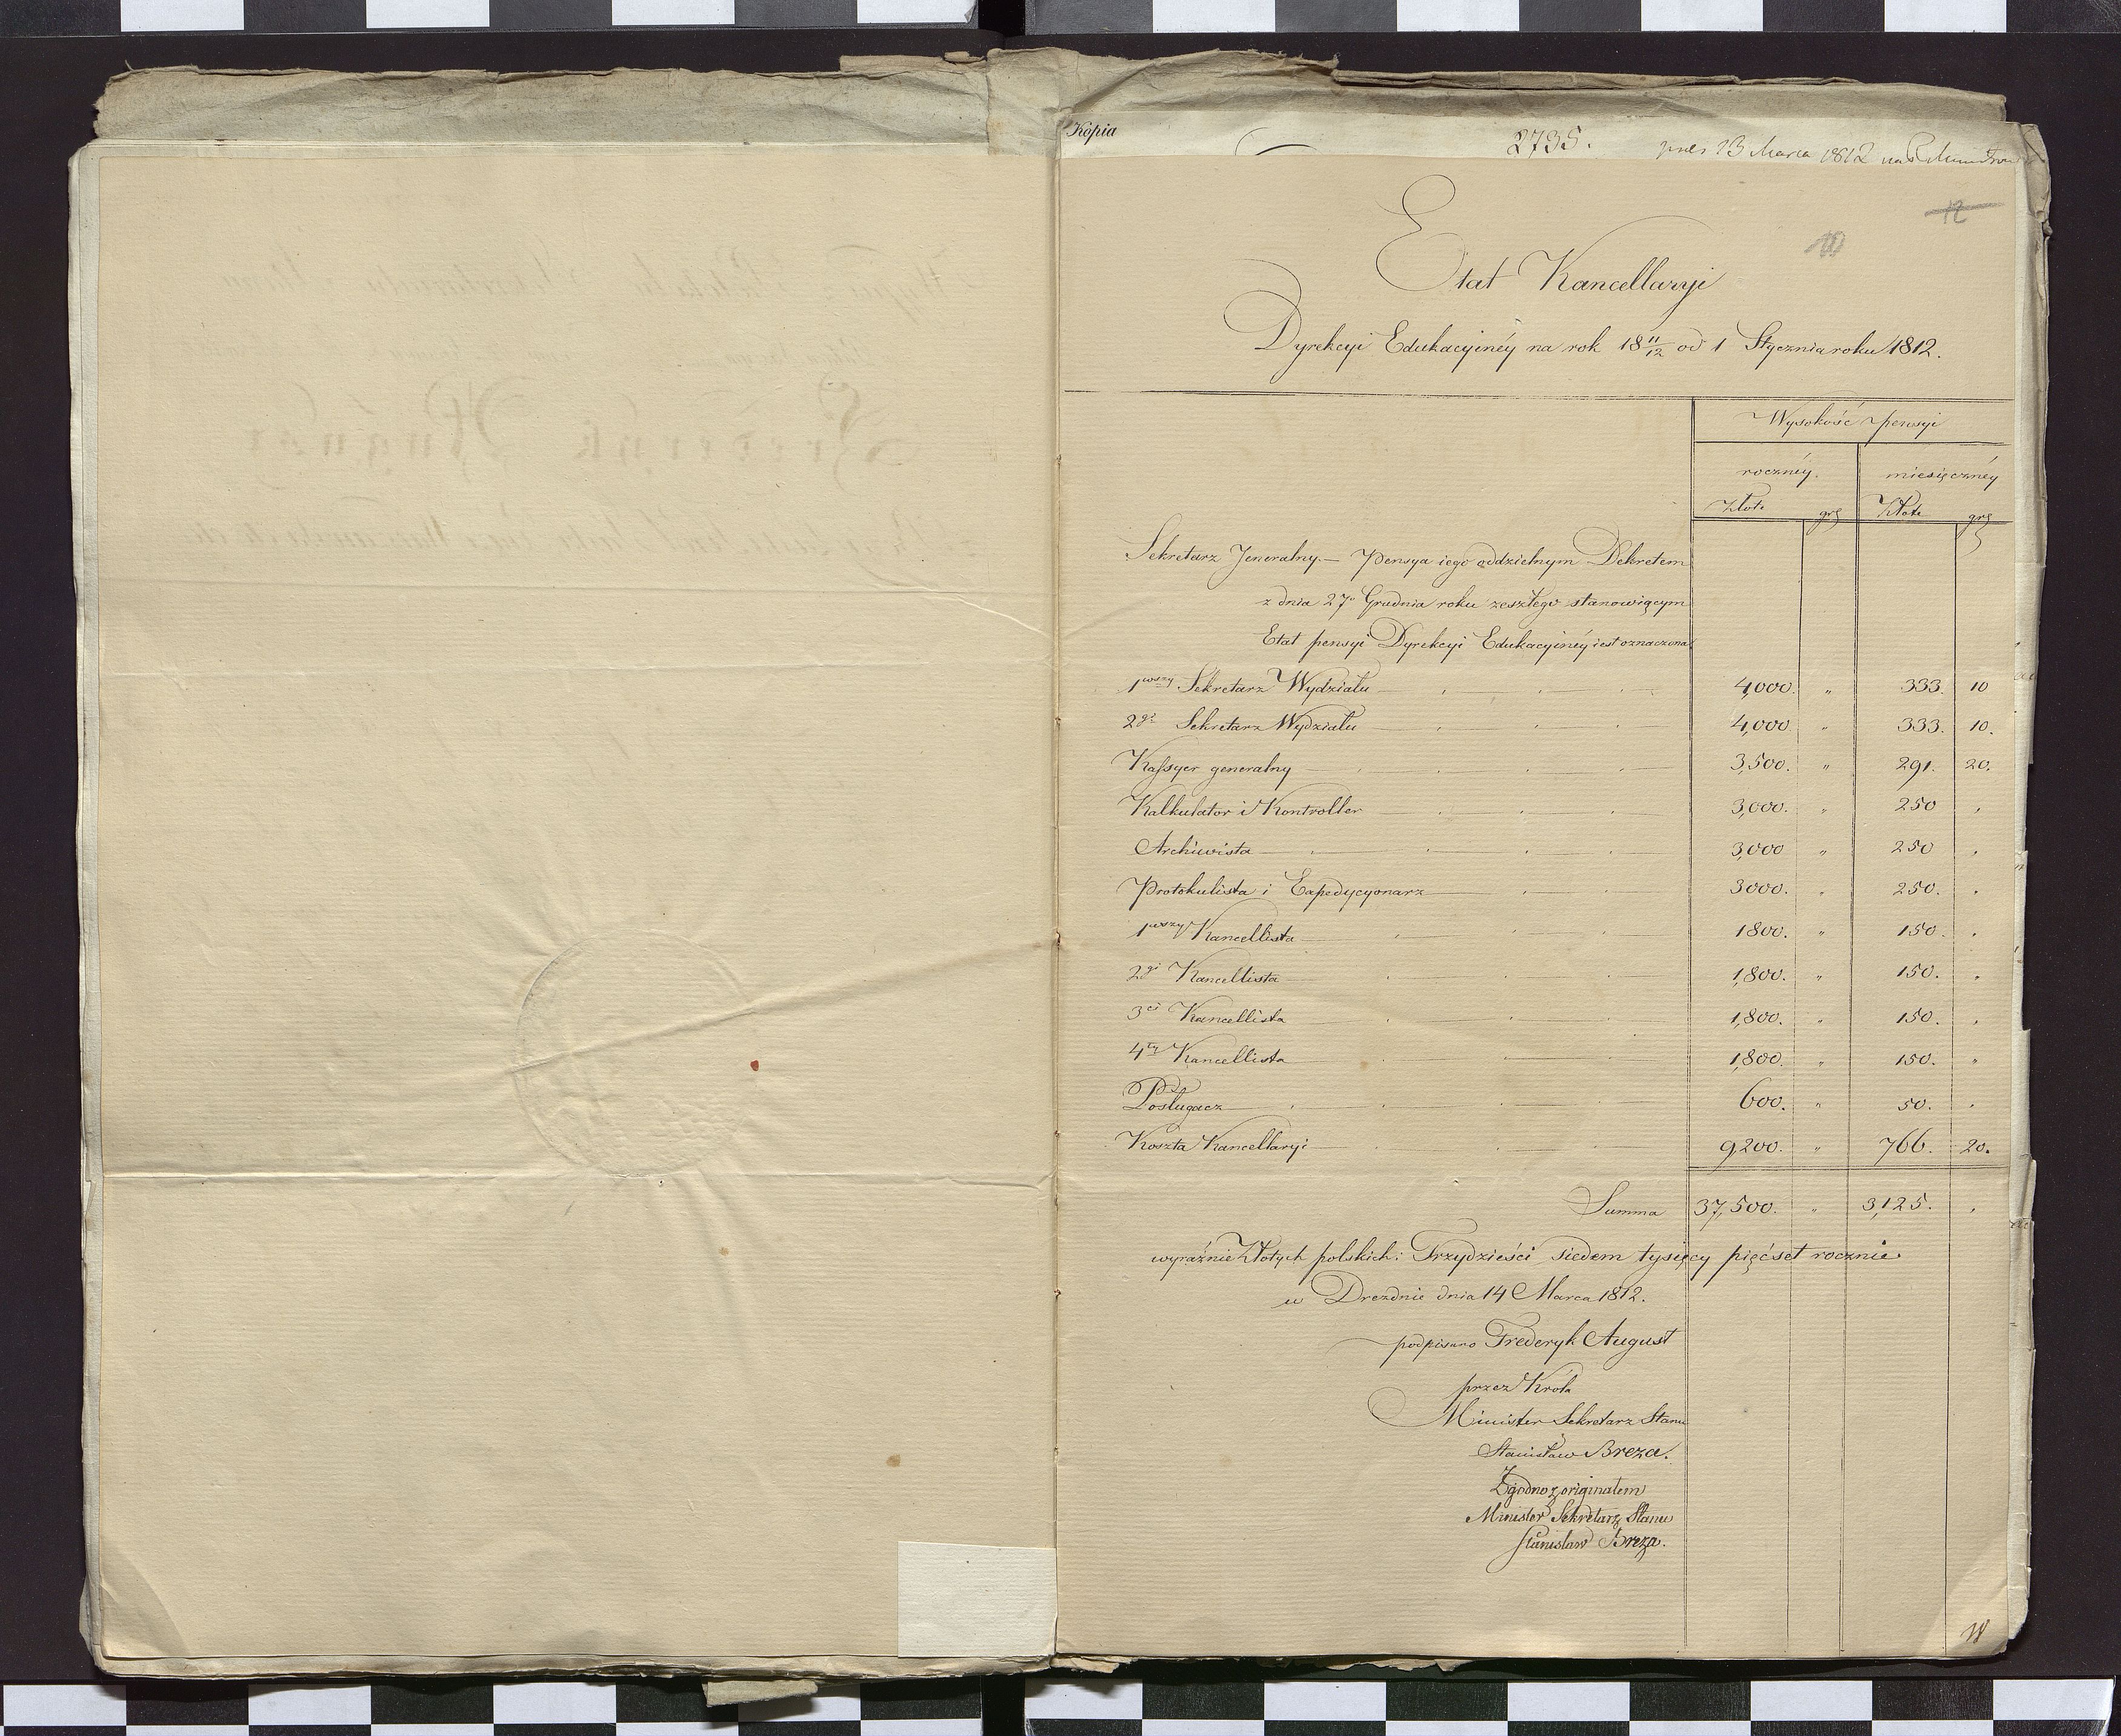 Kopia
2735.
12
Etat Kancellaryi
Dyrekcyi Edukacyinéy na rok 18 11/12 od 1 Stycznia roku 1812.
Wysokość pensyi
rocznéy. miesięcznéy
Złote grs Złote grs
Sekretarz Jeneralny. — Pensya iego oddzielnym Dekretem
z dnia 27o Grudnia roku zeszłego stanowiącym
Etat pensyi Dyrekcyi Edukacyinéy iest oznaczona
1wszy Sekretarz Wydziału 4,000. " 333. 10
2gi Sekretarz Wydziału 4,000 " 333. 10.
Kassyer generalny 3,500. " 291. 20.
Kalkulator i Kontroller 3,000. " 250 "
Archiwista 3,000 " 250 "
Protokulista i Expedycyonarz 3000. " 250. "
1wszy Kancellista 1800. " 150. "
2gi Kancellista 1,800. " 150. "
3ci Kancellista 1,800. " 150. "
4ty Kancellista 1,800. " 150. "
Posługacz 600. " 50. "
Koszta Kancellaryi 9,200. " 766. 20.
Summa 37,500. " 3,125. "
wyraźnie Złotych polskich: Trzydzieści siedem tysięcy pięćset rocznie.
w Dreznie dnia 14 Marca 1812.
podpisano Frederyk August
przez Króla
Minister Sekretarz Stanu
Stanisław Breza.
Zgodno z originałem
Minister Sekretarz Stanu
Stanisław Breza.